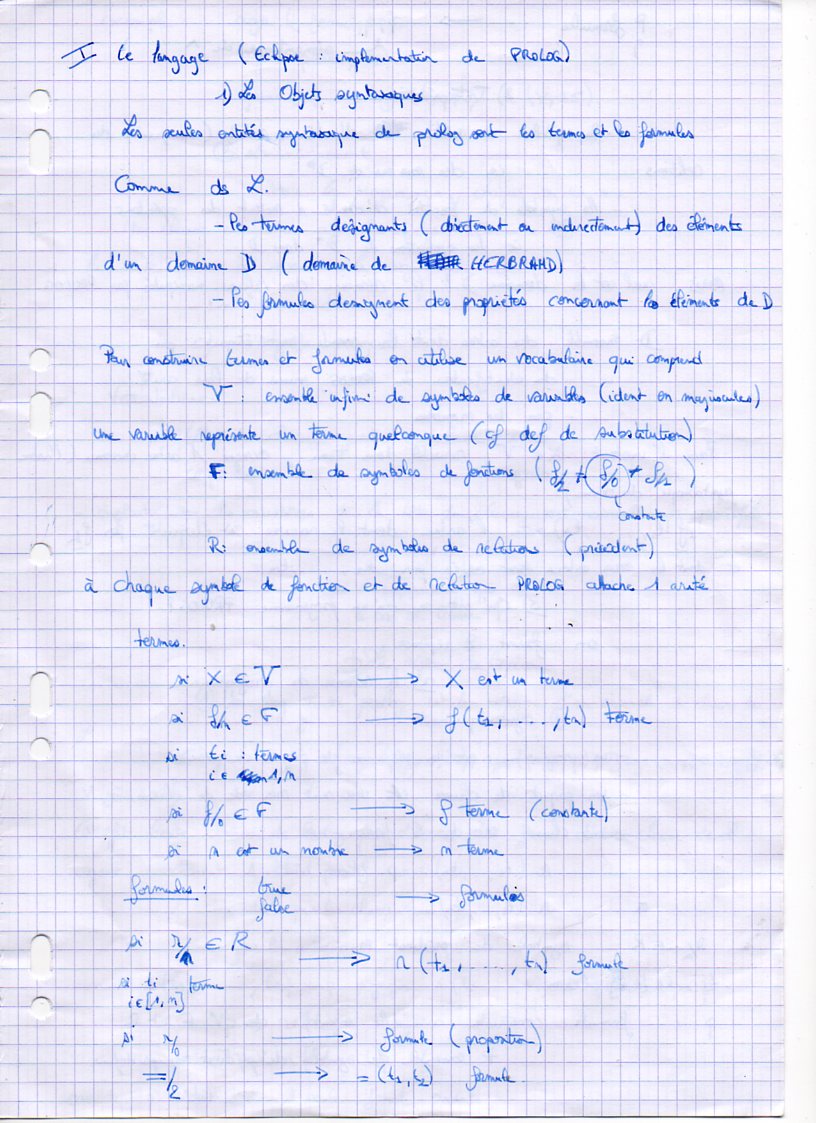 I Le langage (Eclipse : implementation de PROLOG)
1) Les Objets syntaxiques
Les seules entités syntaxique de prolog sont les termes et les formules
Comme ds L.
- Les termes designants (directement ou indirectement) des éléments
d'un domaine D (domaine de HERBRAND)
- Les formules designent des propriétés concernant les éléments de D
Pour construire termes et formules on utilise un vocabulaire qui comprend
V : ensemble infini de symboles de variables (ident en majuscules)
une variable représente un terme quelconque (cf def de substitution)
F : ensemble de symboles de fonctions (f/2 ≠ f/0 ≠ f/1)
constante
R : ensemble de symboles de relations (précédent)
à chaque symbole de fonction et de relation PROLOG attache 1 arité
termes.
si X ∈ V → X est un terme
si f/n ∈ F → f(t1, ..., tn) terme
si ti : termes
i ∈ 1,n
si f/0 ∈ F → f terme (constante)
si n est un nombre → n terme
formules : true → formules
false
si r/n ∈ R → r(t1, ..., tn) formule
si ti terme
i∈[1,n]
si r/0 → formule (proposition)
=/2 → =(t1,t2) formule.